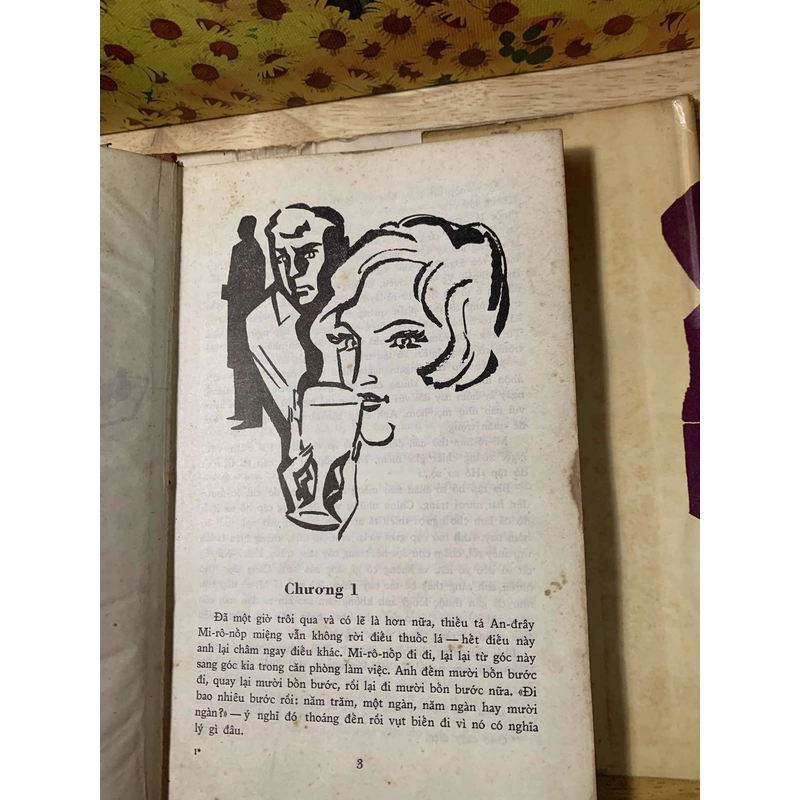 Chương 1
Đã một giờ trôi qua và có lẽ là hơn nữa, thiếu tá An-đrây
Mi-rô-nốp miệng vẫn không rời điếu thuốc lá — hết điếu này
anh lại châm ngay điếu khác. Mi-rô-nốp đi đi, lại lại từ góc này
sang góc kia trong căn phòng làm việc. Anh đếm mười bốn bước
đi, quay lại mười bốn bước, rồi lại đi mười bốn bước nữa. «Đi
bao nhiêu bước rồi: năm trăm, một ngàn, năm ngàn hay mười
ngàn?» — ý nghĩ đó thoáng đến rồi vụt biến đi vì nó có nghĩa
lý gì đâu.
1*
3